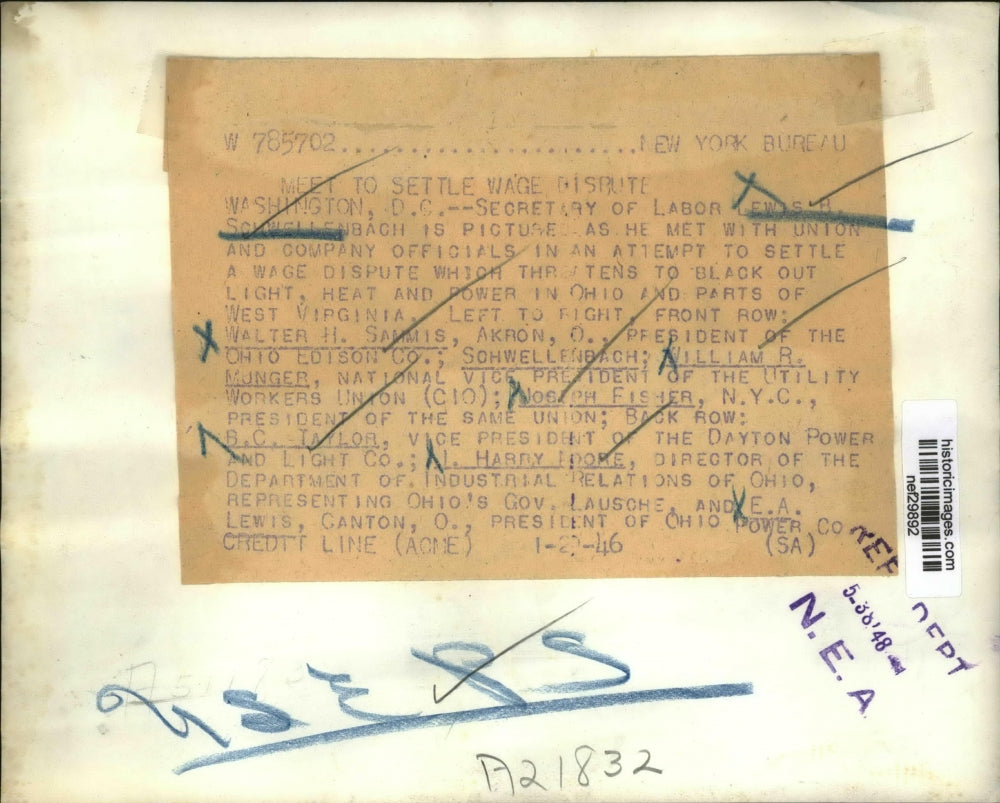 W 785702..........................NEW YORK BUREAU
MEET TO SETTLE WAGE DISPUTE
WASHINGTON, D.C.--SECRETARY OF LABOR LEWIS B.
SCHWELLENBACH IS PICTURED AS HE MET WITH UNION
AND COMPANY OFFICIALS IN AN ATTEMPT TO SETTLE
A WAGE DISPUTE WHICH THREATENS TO BLACK OUT
LIGHT, HEAT AND POWER IN OHIO AND PARTS OF
WEST VIRGINIA. LEFT TO RIGHT, FRONT ROW:
WALTER H. SAMMIS, AKRON, O., PRESIDENT OF THE
OHIO EDISON CO.; SCHWELLENBACH; WILLIAM R.
MUNGER, NATIONAL VICE PRESIDENT OF THE UTILITY
WORKERS UNION (CIO); JOSEPH FISHER, N.Y.C.,
PRESIDENT OF THE SAME UNION; BACK ROW:
TAYLOR, VICE PRESIDENT OF THE DAYTON POWER
AND LIGHT CO.; HARRY DIRECTOR OF THE
DEPARTMENT OF INDUSTRIAL RELATIONS OF OHIO,
REPRESENTING OHIO'S GOV. LAUSCHE, AND E.A.
LEWIS, CANTON, O., PRESIDENT OF OHIO POWER CO
CREDIT LINE (ACME) (SA)
historicimages.com
nef29892
REF DEPT
N.E.A
A21832